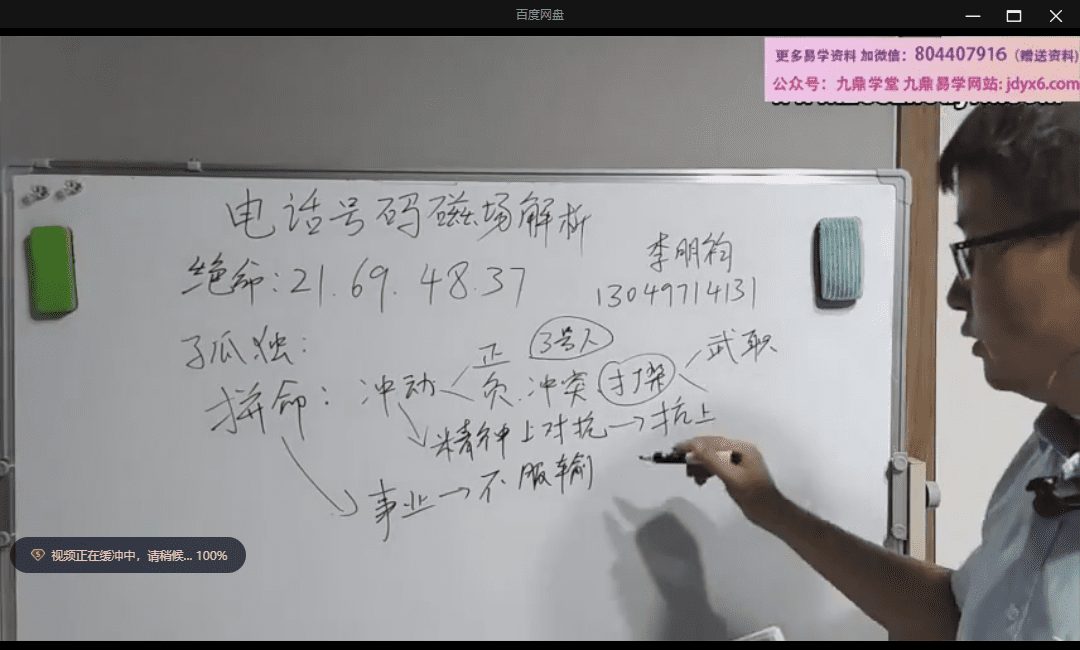 百度网盘
更多易学资料 加微信: 804407916 (赠送资料)
公众号: 九鼎学堂 九鼎易学网站: jdyx6.com
电话号码磁场解析
李明
绝命: 21. 69. 48. 37
13049714131
孤独:
正 3号人 武职
拼命: 冲动 负. 冲突 打架
精神上对抗 → 抗上
事业 → 不服输
视频正在缓冲中, 请稍候... 100%